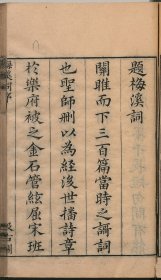 題梅溪詞
關雎而下三百篇當時之謌詞
也聖師刪以為經後世播詩章
於樂府被之金石管絃屈宋班